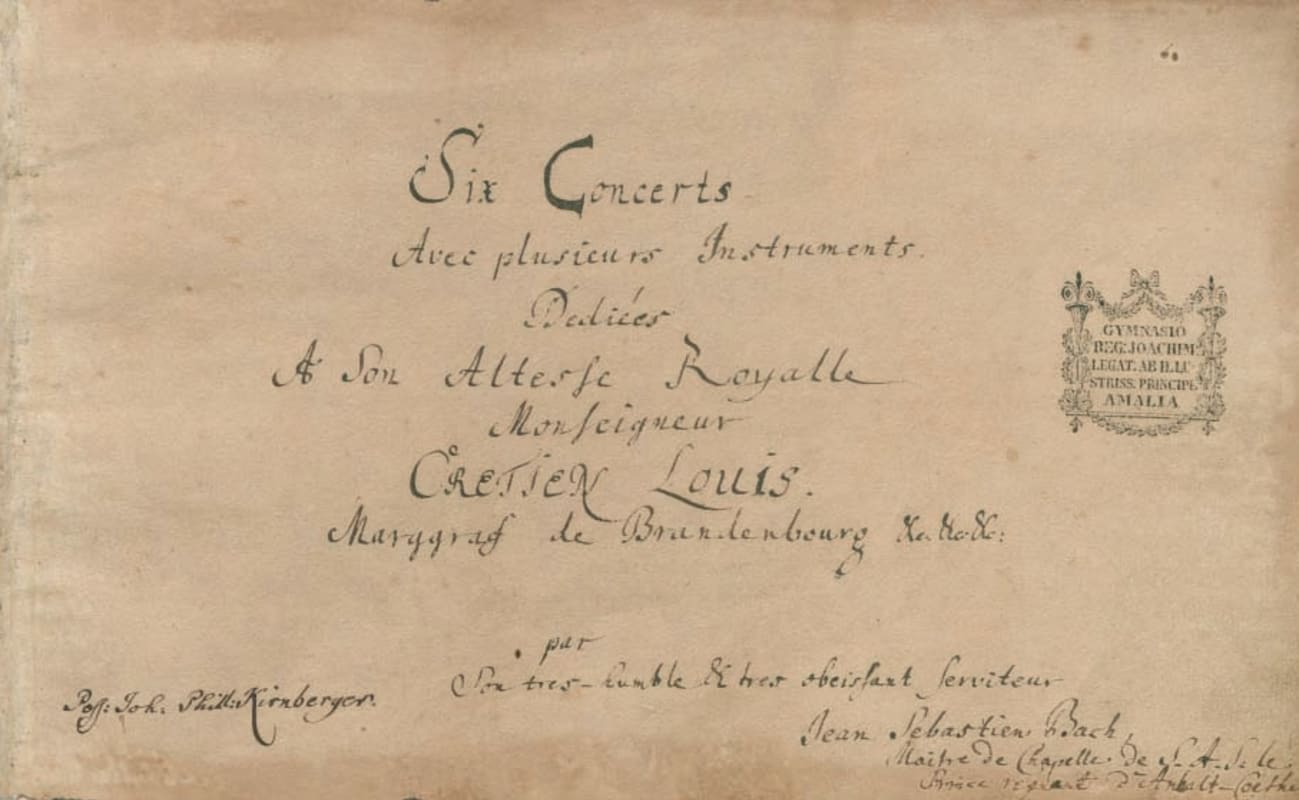 Six Concerts
Avec plusieurs Instruments.
Dediées
A Son Altesse Royalle
Monseigneur
CRETIEN LOUIS.
Marggraf de Brandenbourg &c. &c. &c:
par
Son tres-humble & tres obeissant serviteur
Jean Sebastien Bach,
Maitre de Chapelle de S. A. S. le
Prince regnant d'Anhalt-Coethe
Poss: Joh: Phill: Kirnberger.
GYMNASIO
REG: JOACHIM:
LEGAT. AB ILLU
STRISS. PRINCIPE
AMALIA